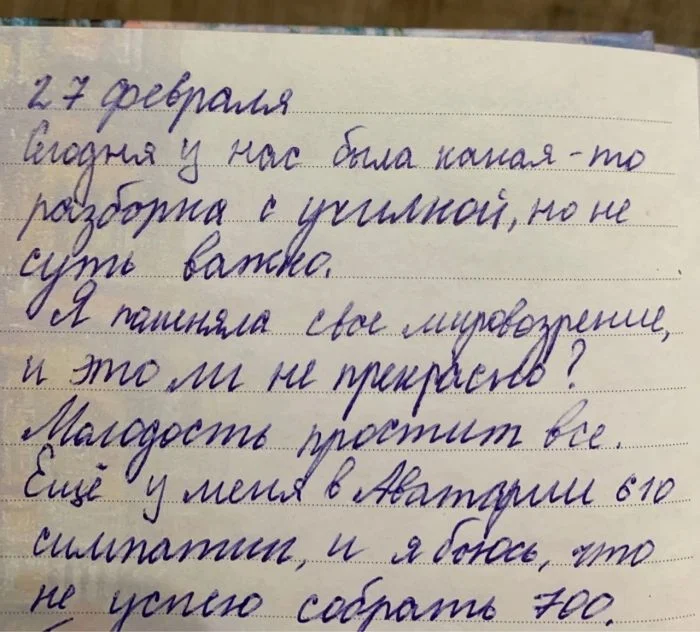 27 февраля
Сегодня у нас была какая-то
разборка с училкой, но не
суть важно.
Я поменяла свое мировозрение,
и это ли не прекрасно?
Молодость простит все.
Ещё у меня в Аватарии 610
симпатии, и я боюсь, что
не успею собрать 700.